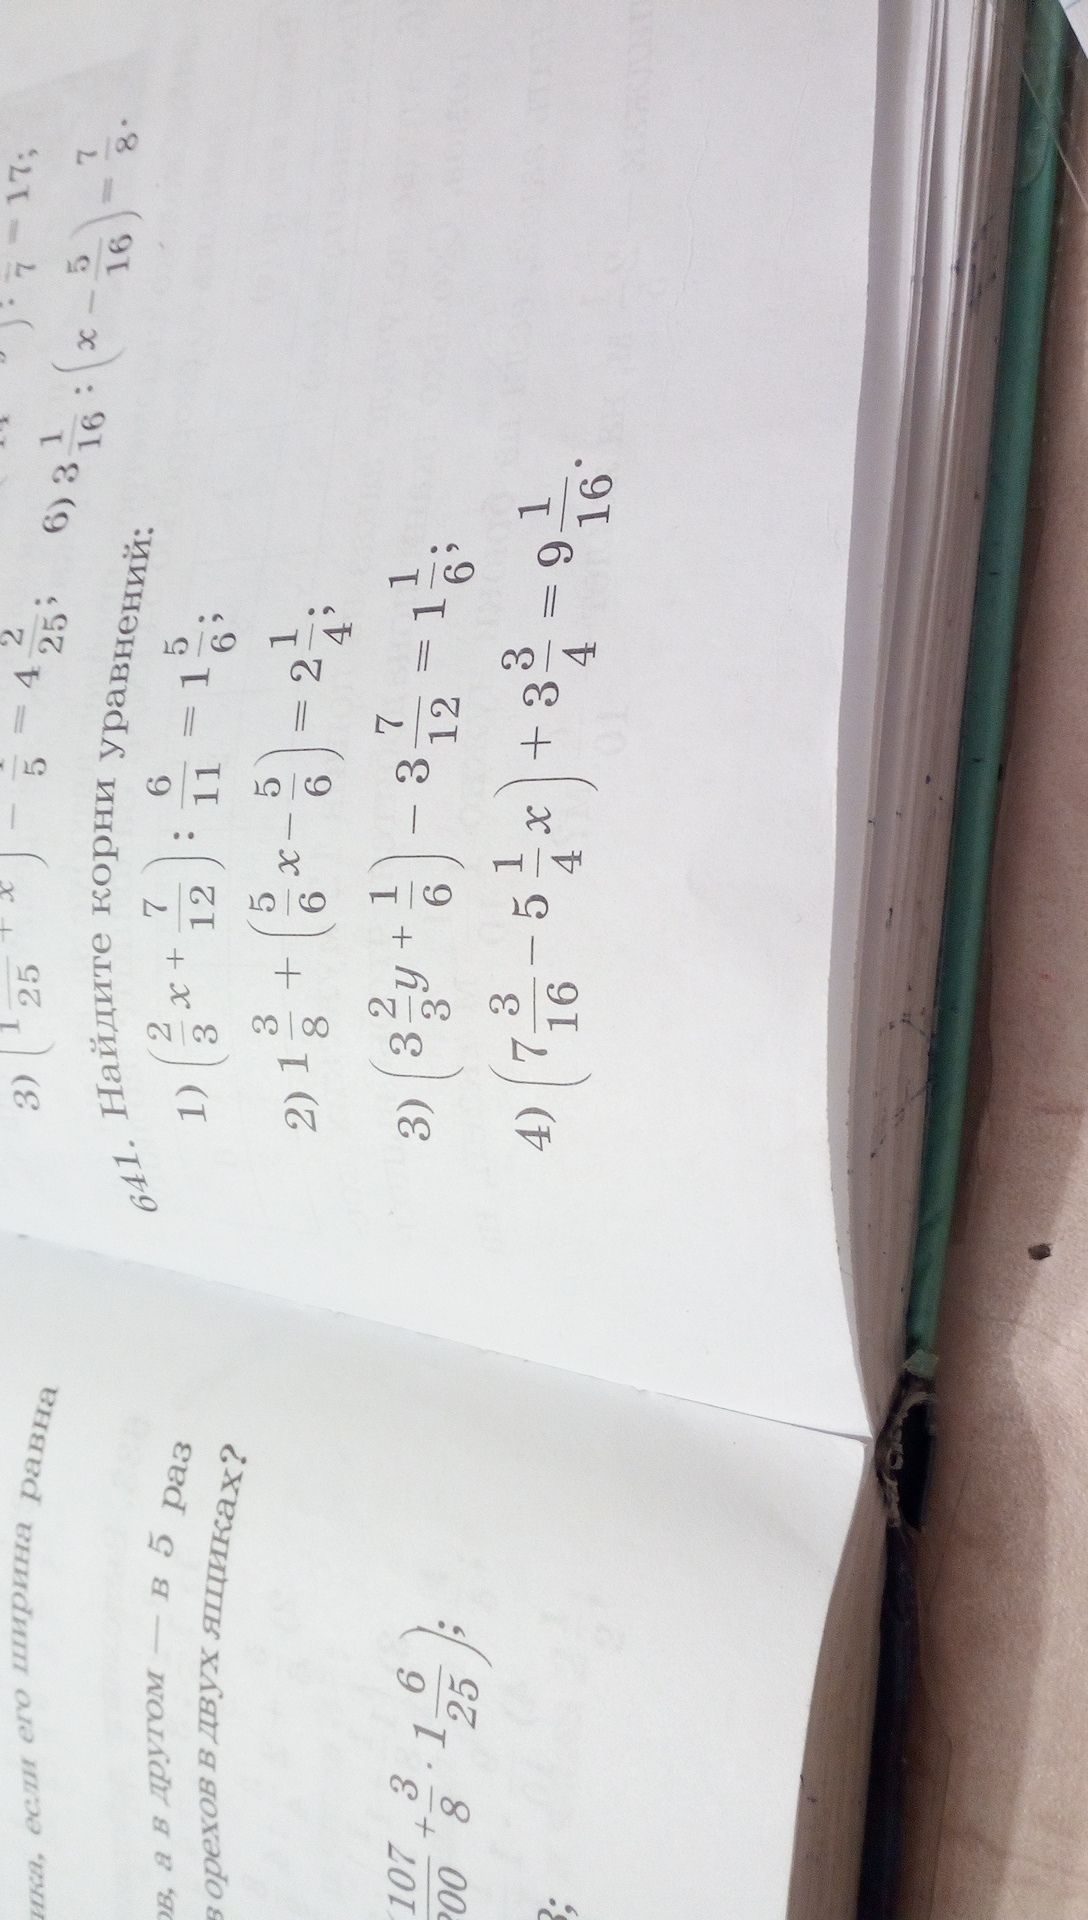 ика, если его ширина равна
ов, а в другом — в 5 раз
в орехов в двух ящиках?
107/200 + 3/8 · 1 6/25);
3) (1/25 + x) − 1/5 = 4 2/25; 6) 3 1/16 : (x − 5/16) = 7/8.
: /7 = 17;
641. Найдите корни уравнений:
1) (2/3 x + 7/12) : 6/11 = 1 5/6;
2) 1 3/8 + (5/6 x − 5/6) = 2 1/4;
3) (3 2/3 y + 1/6) − 3 7/12 = 1 1/6;
4) (7 3/16 − 5 1/4 x) + 3 3/4 = 9 1/16.